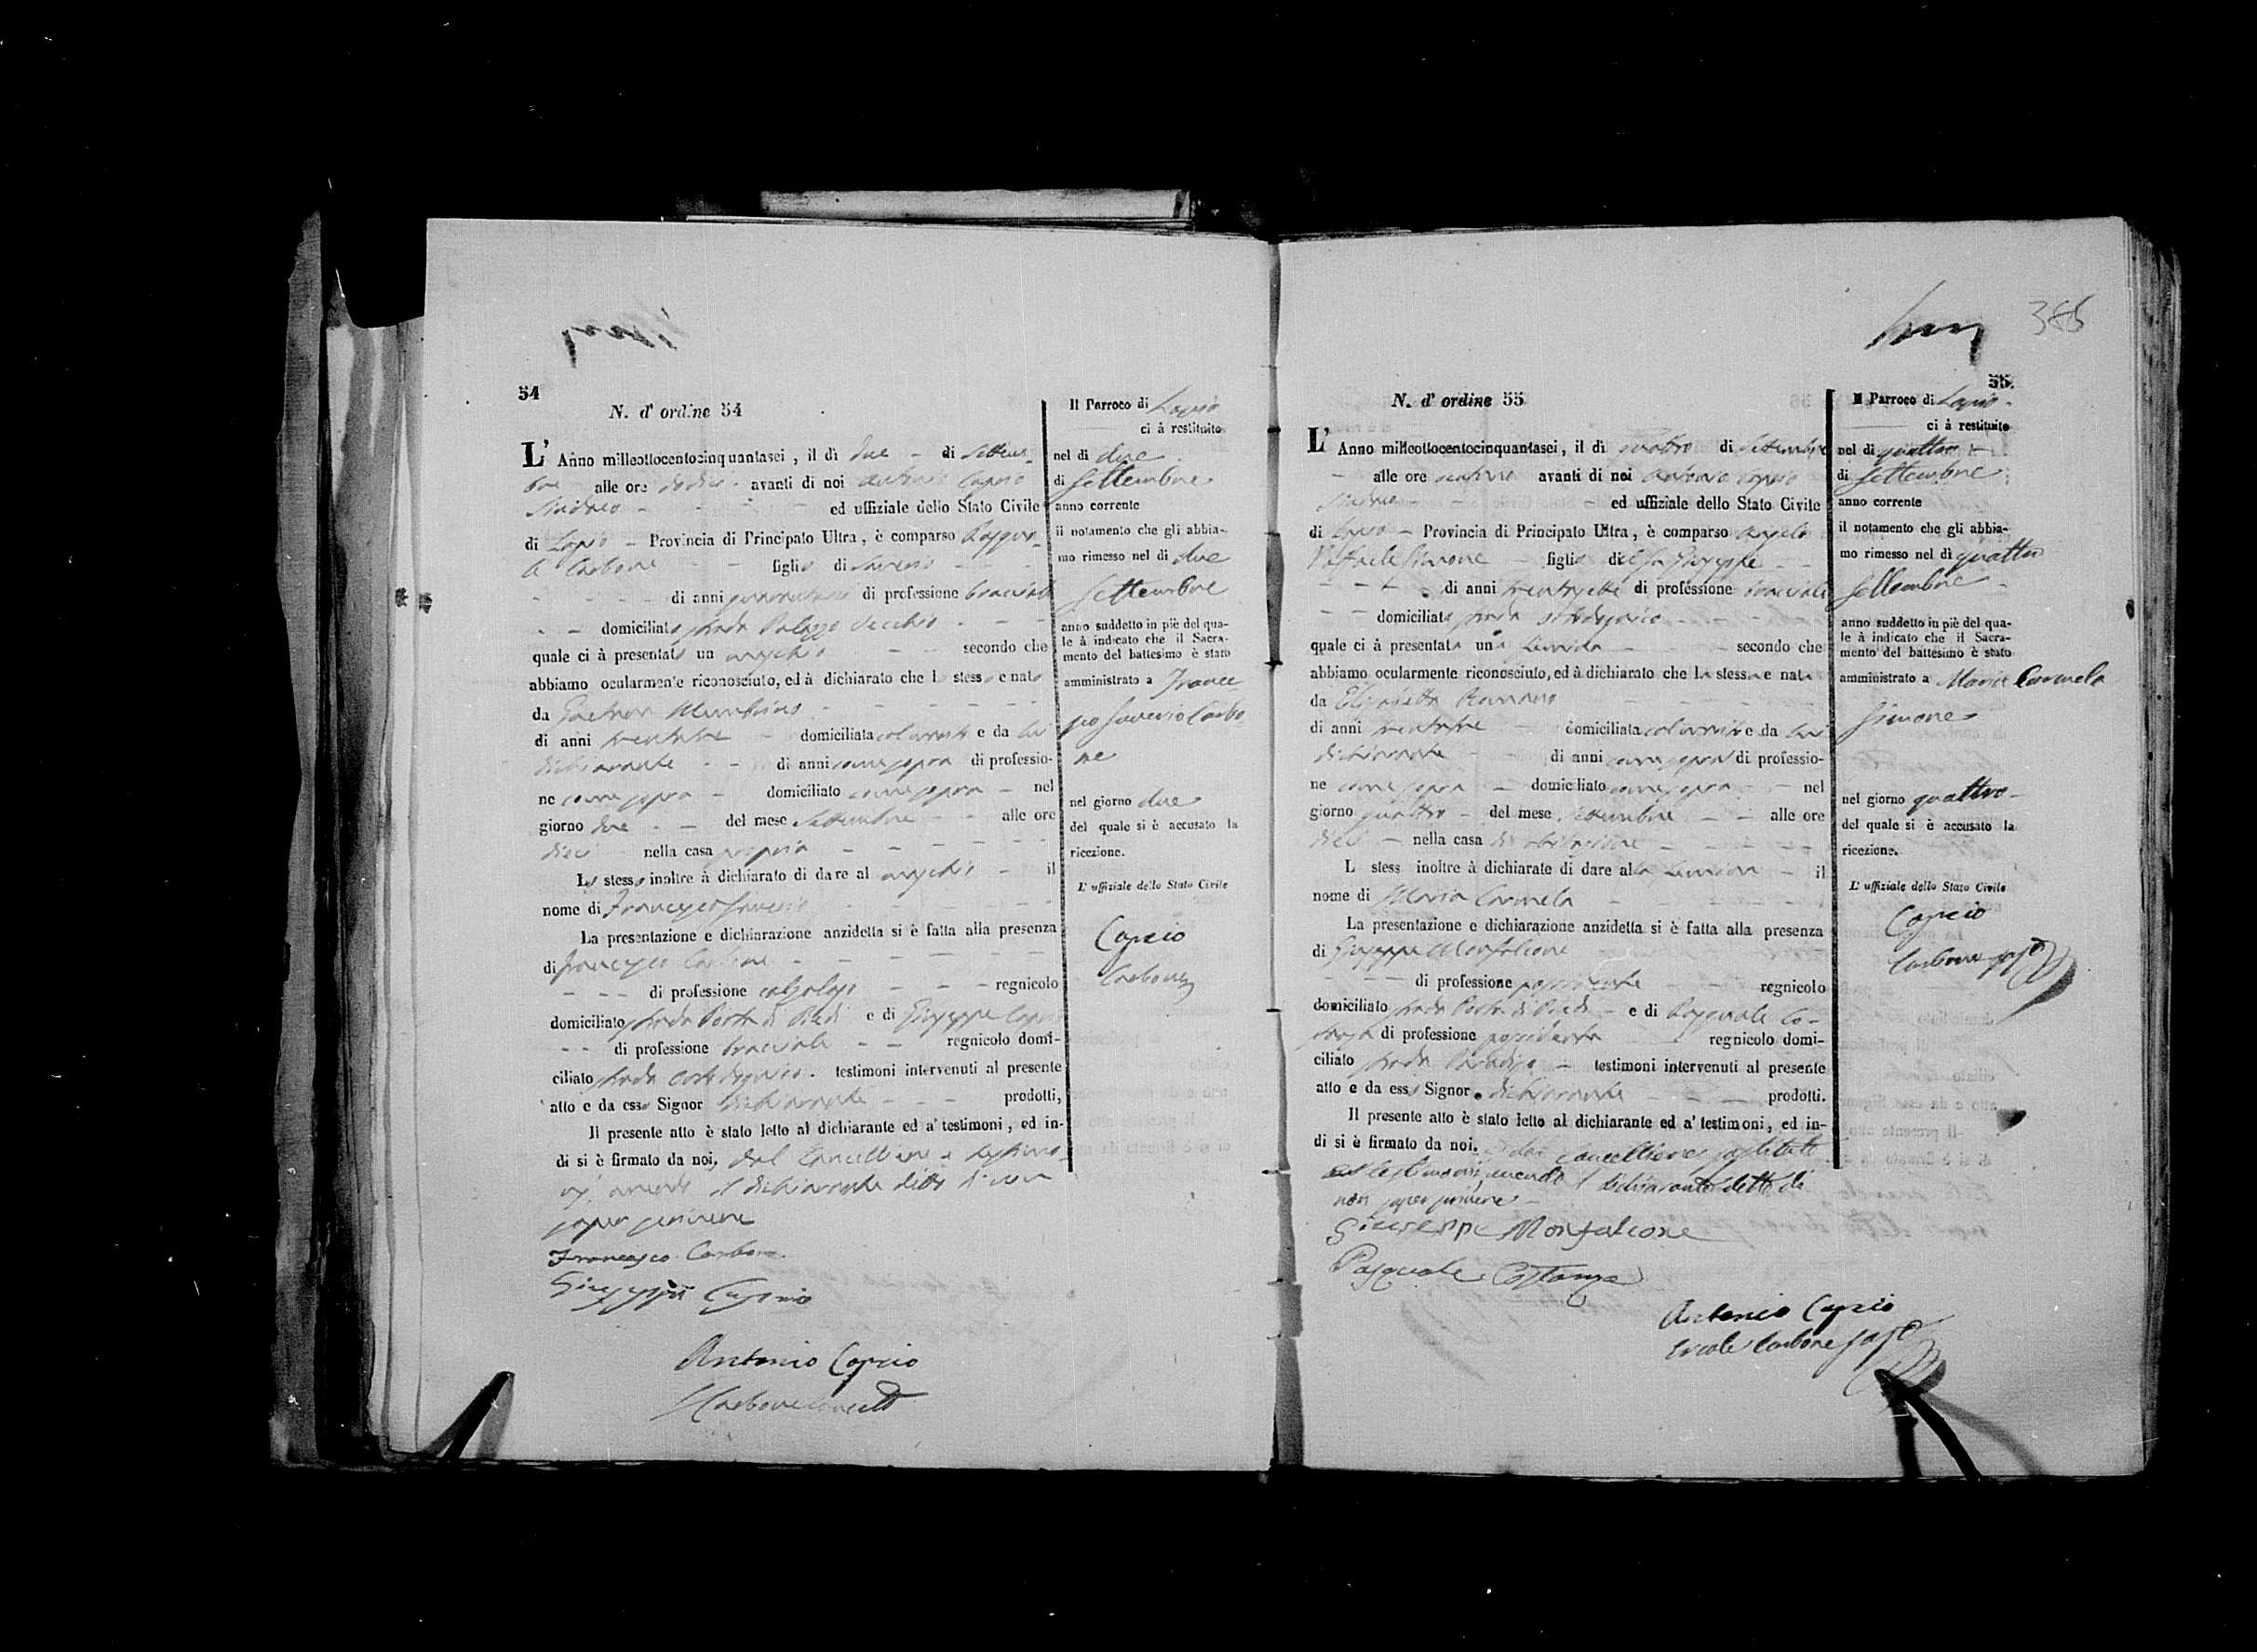 54
N. d' ordine 54
L' Anno milleottocentocinquantasei, il dì due - di Settem-
bre alle ore dodici avanti di noi Antonio Caprio
Sindaco - - - ed uffiziale dello Stato Civile
di Lapio - Provincia di Principato Ultra, è comparso Pasqua-
le Carbone - - figlio di Saverio - -
di anni di professione bracciale
- - domiciliato strada Palazzo Vecchio - - -
quale ci à presentato un maschio - - secondo che
abbiamo ocularmente riconosciuto, ed à dichiarato che lo stesso e nato
da Gaetana
di anni trentatre - domiciliata col marito e da lui
dichiarante - - di anni come sopra di professio-
ne come sopra - domiciliato come sopra - nel
giorno due - - del mese Settembre - - alle ore
dieci nella casa propria - - - -
Lo stesso inoltre à dichiarato di dare al maschio - il
nome di Francesco Saverio
La presentazione e dichiarazione anzidetta si è fatta alla presenza
di Francesco Carbone - - - -
- - - di professione calzolajo - - - regnicolo
domiciliato strada Porta di Piedi e di Giuseppe Caprio
- - di professione bracciale - - regnicolo domi-
ciliato strada testimoni intervenuti al presente
atto e da esso Signor dichiarante - - - prodotti,
Il presente atto è stato letto al dichiarante ed a' testimoni, ed in-
di si è firmato da noi, dal Cancelliere e testimo-
nj, avendo il dichiarante detto di non
saper scrivere
Francesco Carbone
Giuseppe Caprio
Antonio Caprio
Carbone
Il Parroco di Lapio
ci à restituito
nel dì due
di Settembre
anno corrente
il notamento che gli abbia-
mo rimesso nel dì due
Settembre
anno suddetto in piè del qua-
le à indicato che il Sacra-
mento del battesimo è stato
amministrato a France
sco Saverio Carbo
ne
nel giorno due
del quale si è accusato la
ricezione.
L' uffiziale dello Stato Civile
Caprio
Carbone
365
55
N. d' ordine 55
L' Anno milleottocentocinquantasei, il dì quattro di Settembre
- alle ore avanti di noi Antonio Caprio
Sindaco - - - ed uffiziale dello Stato Civile
di Lapio - Provincia di Principato Ultra, è comparso Angelo
Raffaele Simone - figlio del fu Giuseppe - -
- - - di anni trentasette di professione bracciale
- - domiciliato strada
quale ci à presentata una femina - - - secondo che
abbiamo ocularmente riconosciuto, ed à dichiarato che la stessa e nata
da Elisabetta Romano
di anni trentatre - domiciliata col marito e da lui
dichiarante - - di anni come sopra di professio-
ne come sopra - domiciliato come sopra - - nel
giorno quattro - del mese Settembre - - alle ore
dieci - nella casa di abitazione - - - -
L stess inoltre à dichiarato di dare alla femina - il
nome di Maria Carmela
La presentazione e dichiarazione anzidetta si è fatta alla presenza
di Giuseppe Monfalcone
- - - di professione possidente - - regnicolo
domiciliato strada Porta di Piedi - e di Pasquale Co-
stanza di professione possidente - regnicolo domi-
ciliato strada Paradiso - testimoni intervenuti al presente
atto e da esso Signor dichiarante - - - prodotti.
Il presente atto è stato letto al dichiarante ed a' testimoni, ed in-
di si è firmato da noi, dal Cancelliere sostituto
e testimonj, avendo il dichiarante detto di
non saper scrivere -
Giuseppe Monfalcone
Pasquale Costanza
Antonio Caprio
Ercole Carbone sosto
Il Parroco di Lapio -
ci à restituito
nel dì quattro -
di Settembre
anno corrente
il notamento che gli abbia-
mo rimesso nel dì quattro
Settembre -
anno suddetto in piè del qua-
le à indicato che il Sacra-
mento del battesimo è stato
amministrato a Maria Carmela
Simone
nel giorno quattro -
del quale si è accusato la
ricezione.
L' uffiziale dello Stato Civile
Caprio
Carbone sosto